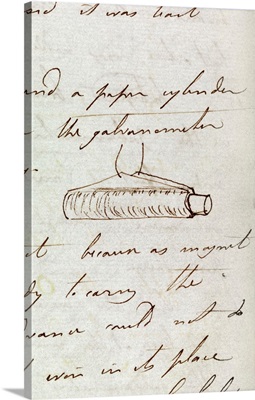 and it was
und a paper cylinder
the galvanometer
t because as magnet
dy to carry the
wance could not do
iron in its place